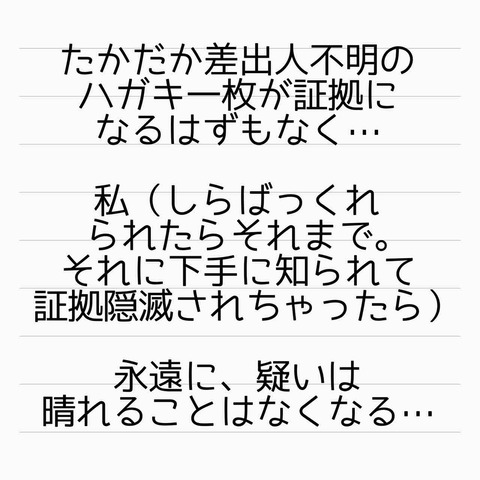 たかだか差出人不明の
ハガキ一枚が証拠に
なるはずもなく…
私（しらばっくれ
られたらそれまで。
それに下手に知られて
証拠隠滅されちゃったら）
永遠に、疑いは
晴れることはなくなる…